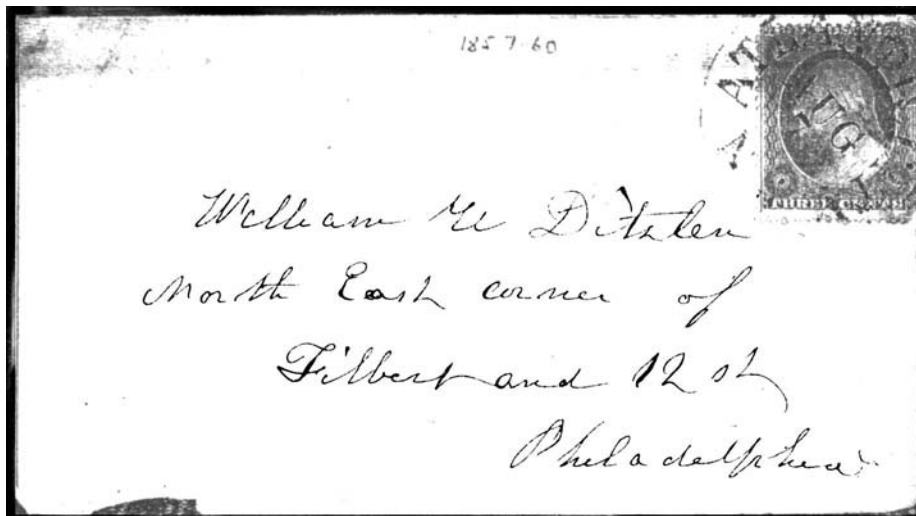 1857-60
AUG
THREE CENTS
William H Ditzler
North East corner of
Filbert and 12 st
Philadelphia